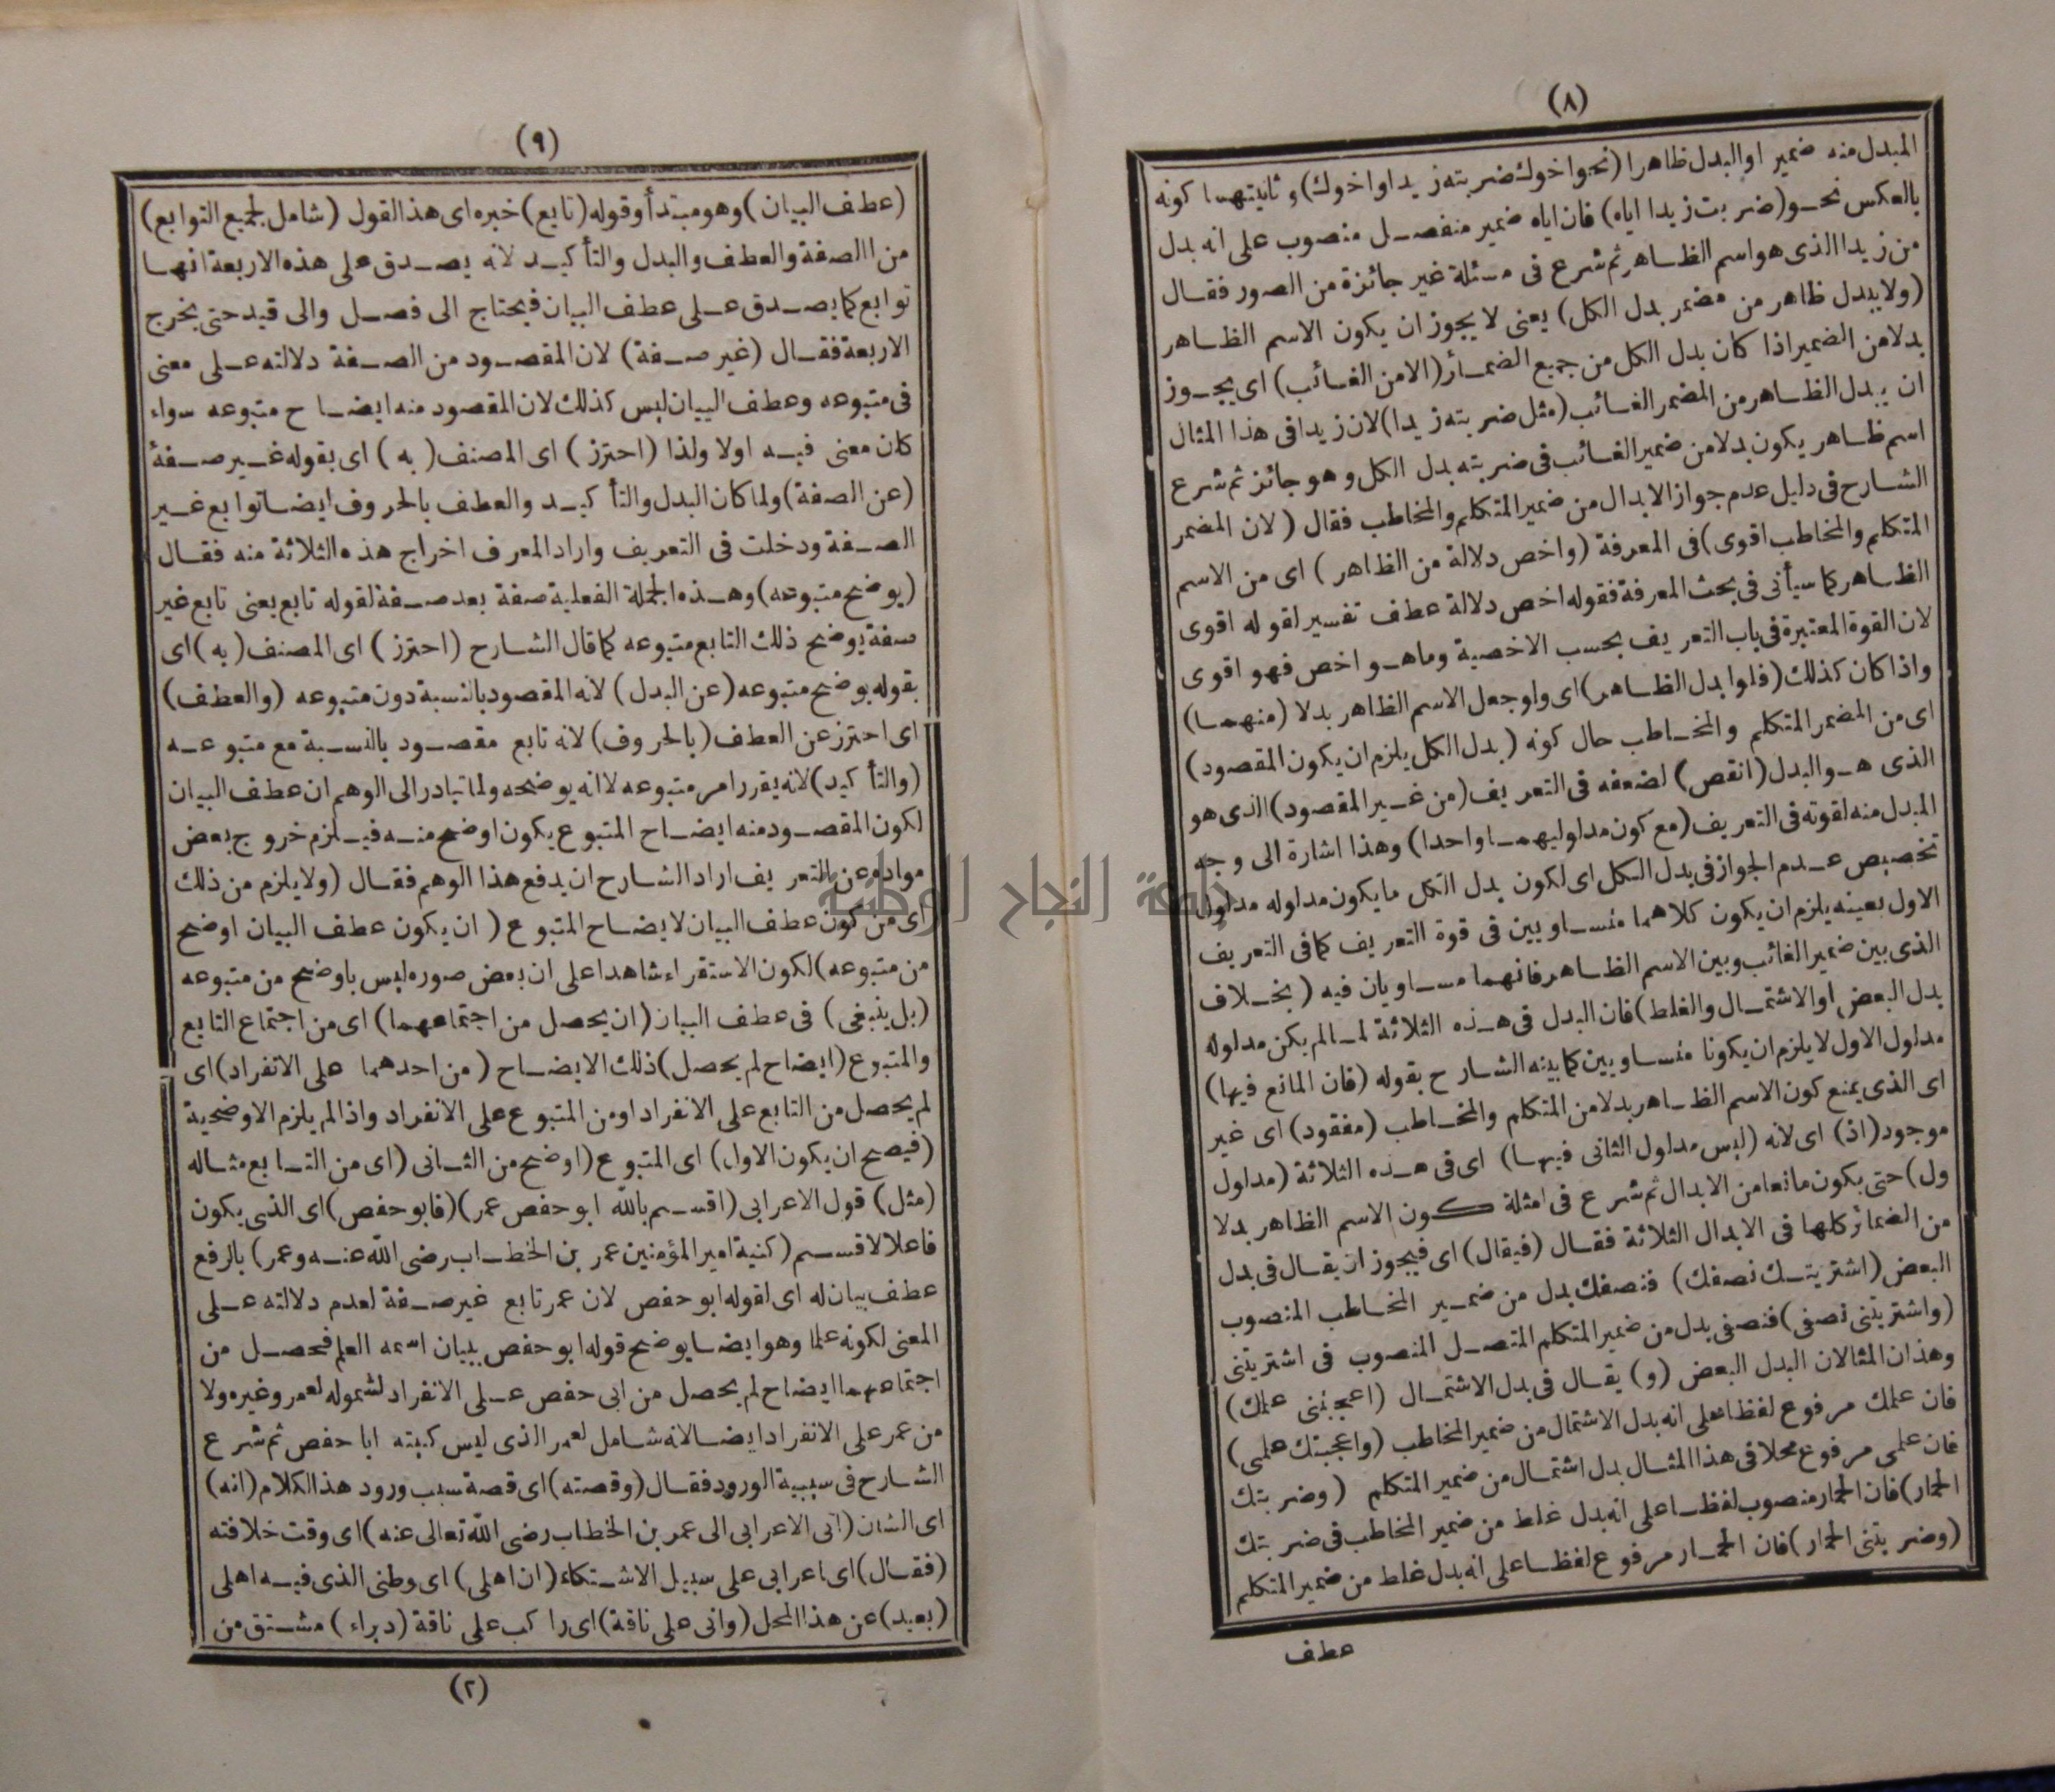 (٨)
المبدل منه ضمير او البدل ظاهرا (نحو اخوك ضربته زيدا واخوك) و ثانيتهما كونه
بالعكس نحو (ضربت زيدا اياه) فان اياه ضمير منفصل منصوب على انه بدل
من زيدا الذى هو اسم الظاهر ثم شرع فى مسئلة غير جائزة من الصور فقال
(ولا يبدل ظاهر من مضمر بدل الكل) يعنى لا يجوز ان يكون الاسم الظاهر
بدلا من الضمير اذا كان بدل الكل من جميع الضمائر (الا من الغائب) اى يجوز
ان يبدل الظاهر من المضمر الغائب (مثل ضربته زيدا) لان زيدا فى هذا المثال
اسم ظاهر يكون بدلا من ضمير الغائب فى ضربته بدل الكل وهو جائز ثم شرع
الشارح فى دليل عدم جواز الابدال من ضمير المتكلم والمخاطب فقال (لان المضمر
المتكلم والمخاطب اقوى) فى المعرفة (واخص دلالة من الظاهر) اى من الاسم
الظاهر كما سيأتى فى بحث المعرفة فقوله اخص دلالة عطف تفسير لقوله اقوى
لان القوة المعتبرة فى باب التعريف بحسب الاخصية وما هو اخص فهو اقوى
واذا كان كذلك (فلو ابدل الظاهر) اى ولو جعل الاسم الظاهر بدلا (منهما)
اى من المضمر المتكلم والمخاطب حال كونه (بدل الكل يلزم ان يكون المقصود)
الذى هو البدل (انقص) لضعفه فى التعريف (من غير المقصود) الذى هو
المبدل منه لقوته فى التعريف (مع كون مدلوليهما واحدا) وهذا اشارة الى وجه
تخصيص عدم الجواز فى بدل الكل اى لكون بدل الكل ما يكون مدلوله مدلول
الاول بعينه يلزم ان يكون كلاهما متساويين فى قوة التعريف كما فى التعريف
الذى بين ضمير الغائب وبين الاسم الظاهر فانهما مساويان فيه (بخلاف
بدل البعض او الاشتمال والغلط) فان البدل فى هذه الثلاثة لما لم يكن مدلوله
مدلول الاول لا يلزم ان يكونا متساويين كما بينه الشارح بقوله (فان المانع فيها)
اى الذى يمنع كون الاسم الظاهر بدلا من المتكلم والمخاطب (مفقود) اى غير
موجود (اذ) اى لانه (ليس مدلول الثانى فيها) اى فى هذه الثلاثة (مدلول
ول) حتى يكون مانعا من الابدال ثم شرع فى امثلة كون الاسم الظاهر بدلا
من الضمائر كلها فى الابدال الثلاثة فقال (فيقال) اى فيجوز ان يقال فى بدل
البعض (اشتريتك نصفك) فنصفك بدل من ضمير المخاطب المنصوب
(واشتريتنى نصفى) فنصفى بدل من ضمير المتكلم المتصل المنصوب فى اشتريتنى
وهذان المثالان البدل البعض (و) يقال فى بدل الاشتمال (اعجبتنى علمك)
فان علمك مرفوع لفظا على انه بدل الاشتمال من ضمير المخاطب (واعجبتك علمى)
فان علمى مرفوع محلا فى هذا المثال بدل اشتمال من ضمير المتكلم (وضربتك
الحمار) فان الحمار منصوب لفظا على انه بدل غلط من ضمير المخاطب فى ضربتك
(وضربتنى الحمار) فان الحمار مرفوع لفظا على انه بدل غلط من ضمير المتكلم
عطف
(٩)
(عطف البيان) وهو مبتدأ وقوله (تابع) خبره اى هذا القول (شامل لجميع التوابع)
من الصفة والعطف والبدل والتأكيد لانه يصدق على هذه الاربعة انها
توابع كما يصدق على عطف البيان فيحتاج الى فصل والى قيد حتى يخرج
الاربعة فقال (غير صفة) لان المقصود من الصفة دلالته على معنى
فى متبوعه وعطف البيان ليس كذلك لان المقصود منه ايضاح متبوعه سواء
كان معنى فيه اولا ولذا (احترز) اى المصنف (به) اى بقوله غير صفة
(عن الصفة) ولما كان البدل والتأكيد والعطف بالحروف ايضا توابع غير
الصفة ودخلت فى التعريف واراد المعرف اخراج هذه الثلاثة منه فقال
(يوضح متبوعه) وهذه الجملة الفعلية صفة بعد صفة لقوله تابع يعنى تابع غير
صفة يوضح ذلك التابع متبوعه كما قال الشارح (احترز) اى المصنف (به) اى
بقوله يوضح متبوعه (عن البدل) لانه المقصود بالنسبة دون متبوعه (والعطف)
اى احترز عن العطف (بالحروف) لانه تابع مقصود بالنسبة مع متبوعه
(والتأكيد) لانه يقرر امر متبوعه لا انه يوضحه ولما تبادر الى الوهم ان عطف البيان
لكون المقصود منه ايضاح المتبوع يكون اوضح منه فيلزم خروج بعض
مواده عن التعريف اراد الشارح ان يدفع هذا الوهم فقال (ولا يلزم من ذلك
اى من كون عطف البيان لايضاح المتبوع (ان يكون عطف البيان اوضح
من متبوعه) لكون الاستقراء شاهدا على ان بعض صوره ليس باوضح من متبوعه
(بل ينبغى) فى عطف البيان (ان يحصل من اجتماعهما) اى من اجتماع التابع
والمتبوع (ايضاح لم يحصل) ذلك الايضاح (من احدهما على الانفراد) اى
لم يحصل من التابع على الانفراد او من المتبوع على الانفراد واذا لم يلزم الاوضحية
(فيصح ان يكون الاول) اى المتبوع (اوضح من الثانى) اى من التابع مثاله
(مثل) قول الاعرابى (اقسم بالله ابو حفص عمر) (فابو حفص) اى الذى يكون
فاعلا لاقسم (كنية امير المؤمنين عمر بن الخطاب رضى الله عنه وعمر) بالرفع
عطف بيان له اى لقوله ابو حفص لان عمر تابع غير صفة لعدم دلالته على
المعنى لكونه علما وهو ايضا يوضح قوله ابو حفص ببيان اسمه العلم فحصل من
اجتماعهما ايضاح لم يحصل من ابى حفص على الانفراد لشموله لعمر وغيره ولا
من عمر على الانفراد ايضا لانه شامل لعمر الذى ليس كنيته ابا حفص ثم شرع
الشارح فى سببية الورود فقال (وقصته) اى قصة سبب ورود هذا الكلام (انه)
اى الشان (اتى الاعرابى الى عمر بن الخطاب رضى الله تعالى عنه) اى وقت خلافته
(فقال) اى اعرابى على سبيل الاشتكاء (ان اهلى) اى وطنى الذى فيه اهلى
(بعيد) عن هذا المحل (وانى على ناقة) اى راكب على ناقة (دبراء) مشتق من
(٢)
جامعة النجاح الوطنية